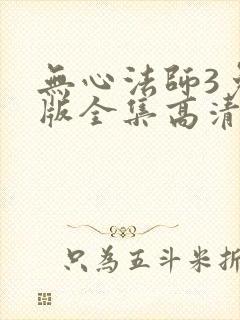 無心法師3
版全集高清
只為五斗米折